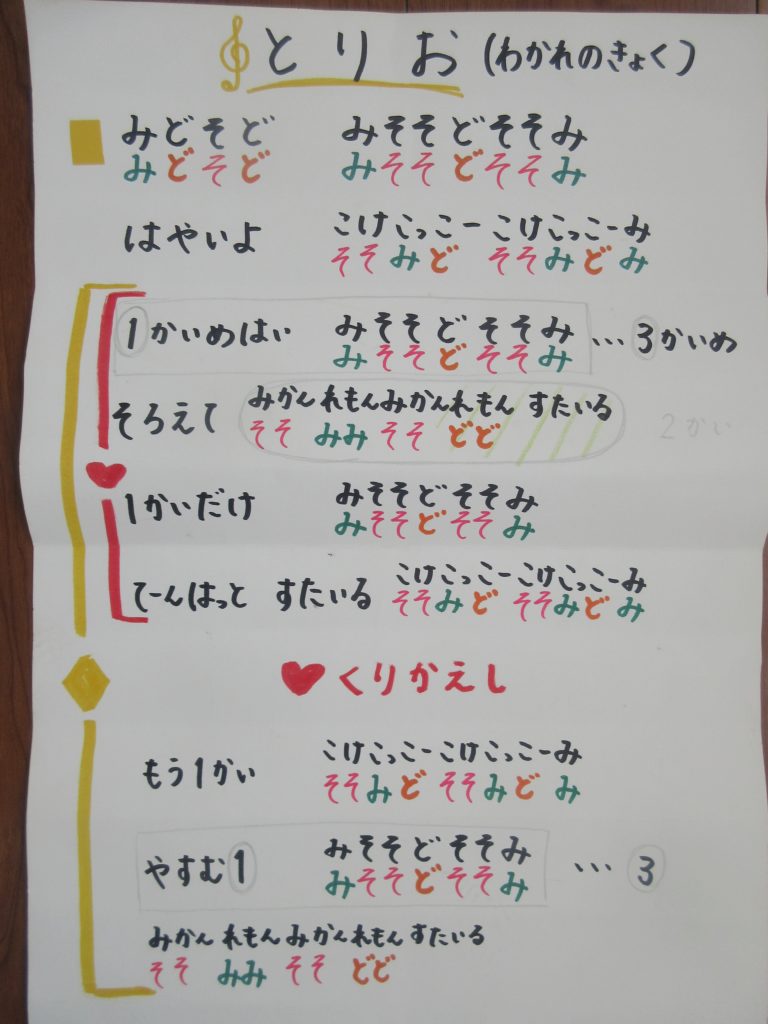 とりお (わかれのきょく)
みどそど みそそどそそみ
みどそど みそそどそそみ
はやいよ こけこっこーこけこっこーみ
そそみど そそみどみ
1かいめはい みそそどそそみ…3かいめ
みそそどそそみ
そろえて みかんれもんみかんれもん すたいる 2かい
そそ みみ そそ どど
1かいだけ みそそどそそみ
みそそどそそみ
てーんはっと すたいる こけこっこーこけこっこーみ
そそみど そそみどみ
くりかえし
もう1かい こけこっこーこけこっこーみ
そそみど そそみどみ
やすむ1 みそそどそそみ …3
みそそどそそみ
みかんれもんみかんれもんすたいる
そそ みみ そそ どど